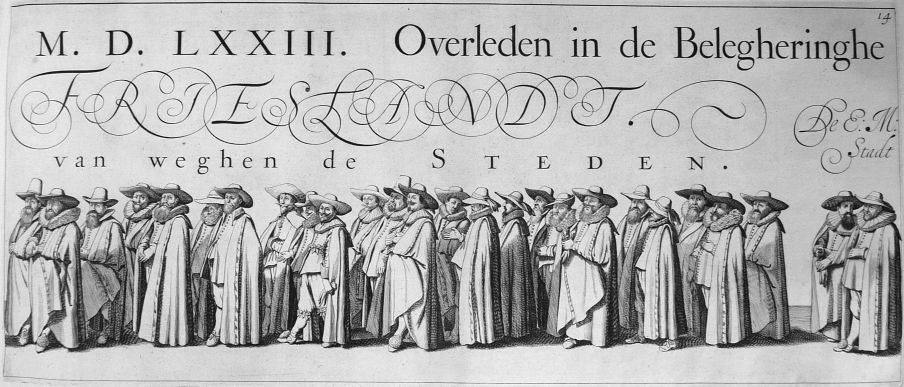 14
M. D. LXXIII. Overleden in de Belegheringhe
FRIESLANDT.
van weghen de STEDEN.
De E. M:
Stadt